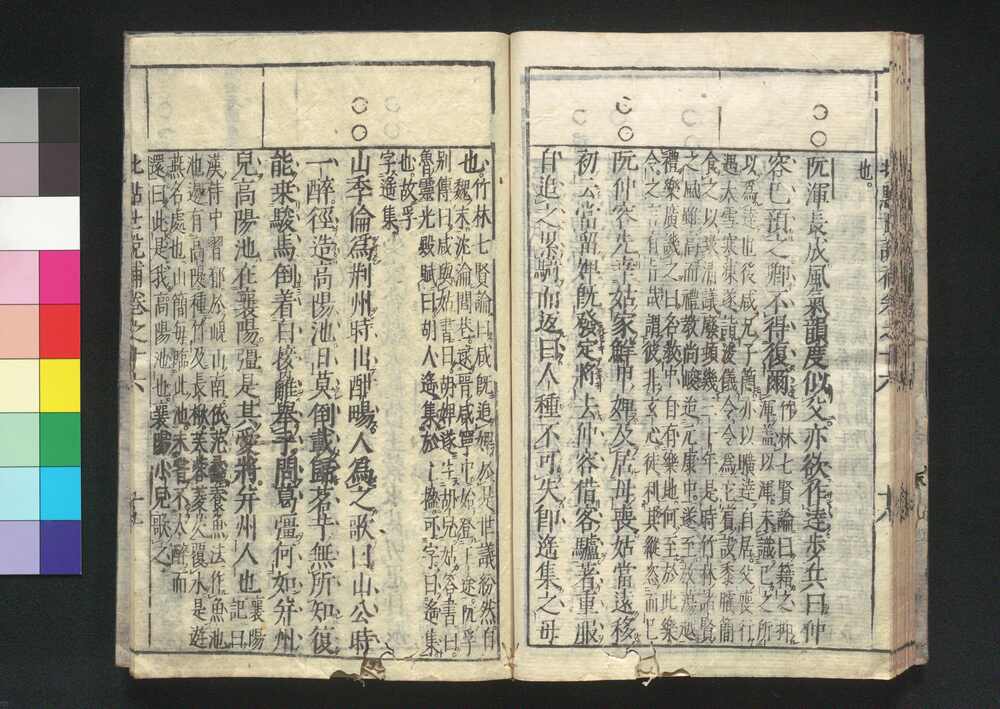 也。
阮渾長成風氣韻度似父亦欲作達步兵曰仲
容已預之卿不得復爾 竹林七賢論曰籍之抑渾蓋以渾未識己之所
以為達也後咸兄子簡亦以曠達自居父喪行
遇大雪寒凍遂詣浚儀令令為它賓設黍臛簡
食之以致清議廢頓幾三十年是時竹林諸賢
之風雖高而禮教尚峻迨元康中遂至放蕩越
禮樂廣譏之曰名教中自有樂地何至於此樂
令之言有旨哉謂彼非玄心徒利其縱恣而已
阮仲容先幸姑家鮮卑婢及居母喪姑當遠移
初云當留婢既發定將去仲容借客驢著重服
自追之累騎而返曰人種不可失即遙集之母
也 竹林七賢論曰咸既追婢於是世議紛然自
魏末沈淪閭巷逮晉咸寧中始登王途阮孚
別傳曰咸與姑書曰胡婢遂生胡兒姑答書曰
魯靈光殿賦曰胡人遙集於上楹可字曰遙集
也故孚
字遙集
山季倫為荊州時出酣暢人為之歌曰山公時
一醉徑造高陽池日莫倒載歸茗艼無所知復
能乗駿馬倒著白接䍦舉手問葛彊何如并州
兒高陽池在襄陽彊是其愛將并州人也 襄陽記曰
漢侍中習郁於峴山南依范蠡養魚法作魚池
池邊有高隄種竹及長楸芙蓉菱芡覆水是遊
燕名處也山簡每臨此池未嘗不大醉而
還曰此是我高陽池也襄陽小兒歌之
批點世說補卷之十六